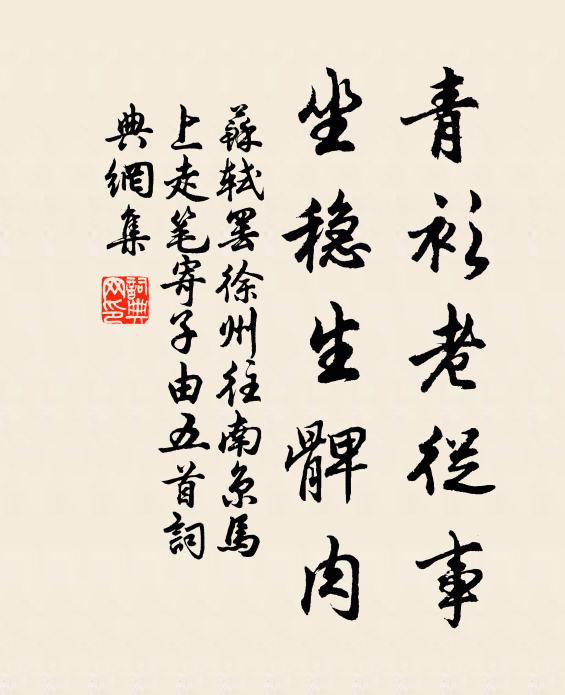 青衫老從事
坐穩生髀肉
蘇軾罷徐州往南京馬
上走笔寄子由五首詞
典網集
詞典
网印